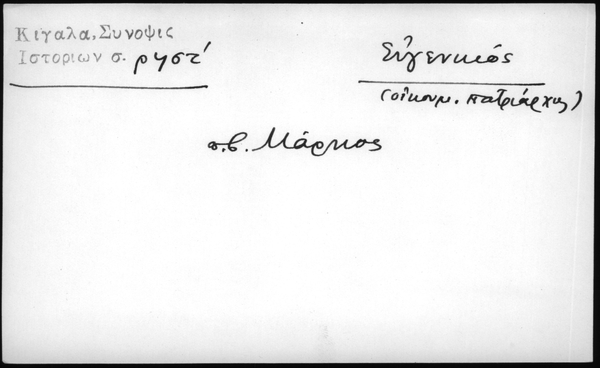 Κιγαλα, Συνοψις
Ιστοριων σ. ρηστ'
Εὐγενικός
(οἰκουμ. πατριάρχης)
π.β. Μάρκος